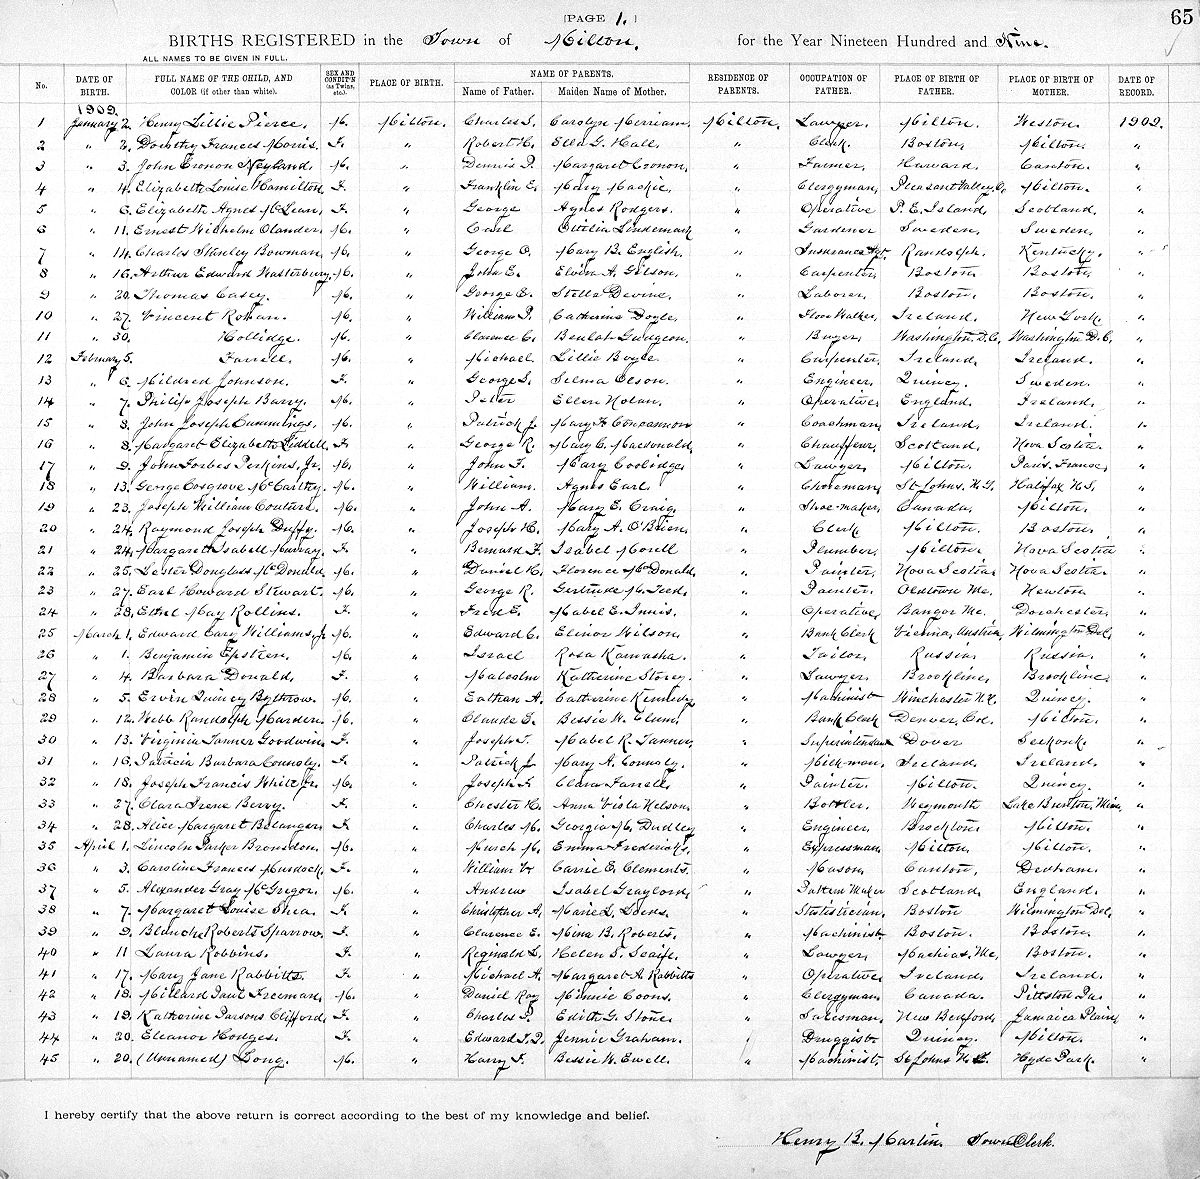 [PAGE 1.]
65
BIRTHS REGISTERED in the Town of Milton, for the Year Nineteen Hundred and Nine.
ALL NAMES TO BE GIVEN IN FULL.
No. DATE OF BIRTH. FULL NAME OF THE CHILD, AND COLOR (if other than white). SEX AND CONDIT'N (as Twins, etc.) PLACE OF BIRTH. NAME OF PARENTS. Name of Father. Maiden Name of Mother. RESIDENCE OF PARENTS. OCCUPATION OF FATHER. PLACE OF BIRTH OF FATHER. PLACE OF BIRTH OF MOTHER. DATE OF RECORD.
1909.
1 January 2. Henry Lillie Pierce. M. Milton. Charles S. Carolyn Merriam. Milton. Lawyer. Milton. Weston. 1909.
2 " 2. Dorothy Frances Morris. F. " Robert H. Ella G. Hall. " Clerk. Boston. Milton. "
3 " 3. John Cronon Neyland. M. " Dennis P. Margaret Cronon. " Farmer. Harvard. Canton. "
4 " 4. Elizabeth Louise Hamilton. F. " Franklin E. Mary Mackie. " Clergyman. Pleasant Valley, Milton. "
5 " 6. Elizabeth Agnes McLean. F. " George Agnes Rodgers. " Operative P. E. Island. Scotland. "
6 " 11. Ernest Wilhelm Olander. M. " Carl Ottilia Lindemark " Gardener Sweden. Sweden. "
7 " 14. Charles Stanley Bowman. M. " George O. Mary B. English. " Insurance Agt. Randolph. Kentucky. "
8 " 16. Arthur Edward Wasterbury. M. " John E. Elvira A. Gilson. " Carpenter. Boston. Boston. "
9 " 20. Thomas Casey. M. " George E. Stella Devine. " Laborer. Boston. Boston. "
10 " 27. Vincent Rohan. M. " William P. Catherine Doyle. " Floor Walker. Ireland. New York. "
11 " 30. Hollidge. M. " Clarence C. Beulah Gudgeon. " Buyer. Washington, D.C. Washington D.C. "
12 February 5. Farrell. M. " Michael Lillie Boyle. " Carpenter. Ireland. Ireland. "
13 " 6. Mildred Johnson. F. " George S. Selma Olson. " Engineer. Quincy. Sweden. "
14 " 7. Philip Joseph Barry. M. " Peter Ellen Nolan. " Operative. England. Ireland. "
15 " 8. John Joseph Cummings. M. " Patrick J. Mary A. Concannon " Coachman. Ireland. Ireland. "
16 " 8. Margaret Elizabeth Liddell. F. " George R. Mary C. Macdonald. " Chauffeur. Scotland. Nova Scotia. "
17 " 9. John Forbes Perkins, Jr. M. " John F. Mary Coolidge. " Lawyer. Milton. Paris. France. "
18 " 13. George Cosgrove McCarthy. M. " William. Agnes Earl. " Choreman. St. Johns. N.F. Halifax N.S. "
19 " 23. Joseph William Couture. M. " John A. Mary E. Craig. " Shoe-maker. Canada. Milton. "
20 " 24. Raymond Joseph Duffy. M. " Joseph H. Mary A. O'Brien. " Clerk Milton. Boston. "
21 " 24. Margaret Isabell Murray. F. " Bernard F. Isabel Morell " Plumber. Milton. Nova Scotia "
22 " 25. Lester Douglass McDonald. M. " Daniel H. Florence McDonald. " Painter. Nova Scotia. Nova Scotia. "
23 " 27. Earl Howard Stewart. M. " George R. Gertrude M. Teed. " Painter. Oldtown Me. Newton. "
24 " 28. Ethel May Rollins. F. " Fred E. Mabel E. Innis. " Operative. Bangor Me. Dorchester. "
25 March 1. Edward Cary Williams, Jr. M. " Edward C. Elinor Wilson. " Bank Clerk Vienna, Austria. Wilmington Del. "
26 " 1. Benjamin Epstein. M. " Israel Rosa Kamasha. " Tailor. Russia. Russia. "
27 " 4. Barbara Donald. F. " Malcolm Katherine Storey. " Lawyer. Brookline. Brookline. "
28 " 5. Ervin Quincy Bythrow. M. " Eathan A. Catherine Kennedy " Machinist Winchester N.H. Quincy. "
29 " 12. Webb Randolph Marden. M. " Claude G. Bessie W. Clum. " Bank Clerk Denver, Col. Milton. "
30 " 13. Virginia Tanner Goodwin. F. " Joseph S. Mabel R. Tanner. " Superintendent Dover Seekonk. "
31 " 16. Patricia Barbara Connoly. F. " Patrick J. Mary A. Connoly. " Milk-man. Ireland. Ireland. "
32 " 18. Joseph Francis White Jr. M. " Joseph F. Clara Farrell. " Painter. Milton. Quincy. "
33 " 27. Clara Irene Berry. F. " Chester H. Anna Vista Nelson. " Bottler. Weymouth Lake Benton, Minn. "
34 " 28. Alice Margaret Belanger. F. " Charles M. Georgia M. Dudley " Engineer. Brockton. Milton. "
35 April 1. Lincoln Parker Bronsdon. M. " March M. Emma Fredericks. " Expressman. Milton. Milton. "
36 " 3. Caroline Frances Murdock. F. " William W. Carrie E. Clements. " Mason. Canton. Dedham. "
37 " 5. Alexander Gray McGregor. M. " Andrew Isabel Graylord. " Pattern Maker Scotland. England. "
38 " 7. Margaret Louise Shea. F. " Christopher A. Marie L. Loens. " Statistician. Boston Wilmington Del. "
39 " 9. Blanche Roberts Sparrow. F. " Clarence E. Mina B. Roberts. " Machinist. Boston. Boston. "
40 " 11 Laura Robbins. F. " Reginald L. Helen S. Scaife. " Lawyer. Machias. Me. Boston. "
41 " 17. Mary Jane Rabbitts. F. " Michael A. Margaret A. Rabbitts " Operative. Ireland. Ireland. "
42 " 18. Millard Paul Freeman. M. " Daniel Ray Minnie Coons. " Clergyman. Canada. Pittston Pa. "
43 " 19. Katherine Parsons Clifford. F. " Charles P. Edith G. Stone. " Salesman. New Bedford. Jamaica Plain. "
44 " 20. Eleanor Hodges. F. " Edward F. D. Jennie Graham. " Druggist. Quincy. Milton. "
45 " 20. (Unnamed) Long. M. " Harry F. Bessie W. Ewell. " Machinist. St Johns Hyde Park. "
I hereby certify that the above return is correct according to the best of my knowledge and belief.
Henry B. Martin. Town Clerk.